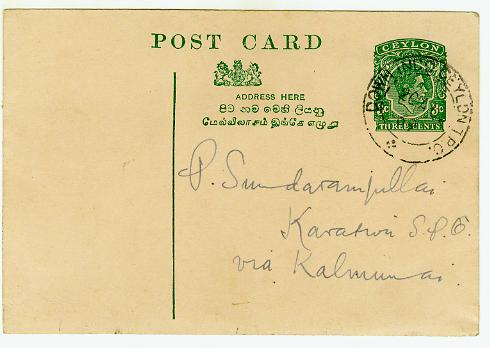 POST CARD
CEYLON
ADDRESS HERE
පිට නම මෙහි ලියනු
மேல்விலாசம் இங்கே எழுது
3c 3c
THREE CENTS
CEYLON T.P.O.
P. Sundarampillai
Karativu S.P.O.
via Kalmunai.